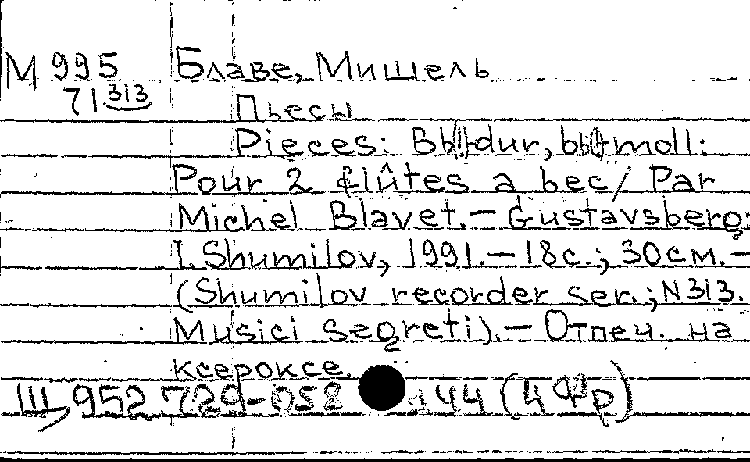 М 995 Блаве, Мишель
71 313 Пьесы
Pieces: B dur, b moll:
Pour 2 flûtes a bec/ Par
Michel Blavet.— Gustavsberg:
I. Shumilov, 1991.— 18с.; 30см.—
(Shumilov recorder ser.; N313.
Musici segreti).— Отпеч. на
ксероксе.
Щ, 952.729-058 144 (4Фр)